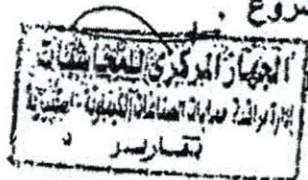 روع .
الجهاز المركزي للمحاسبات
إدارة مراقبة حسابات الصناعات الكيماوية
تقارير